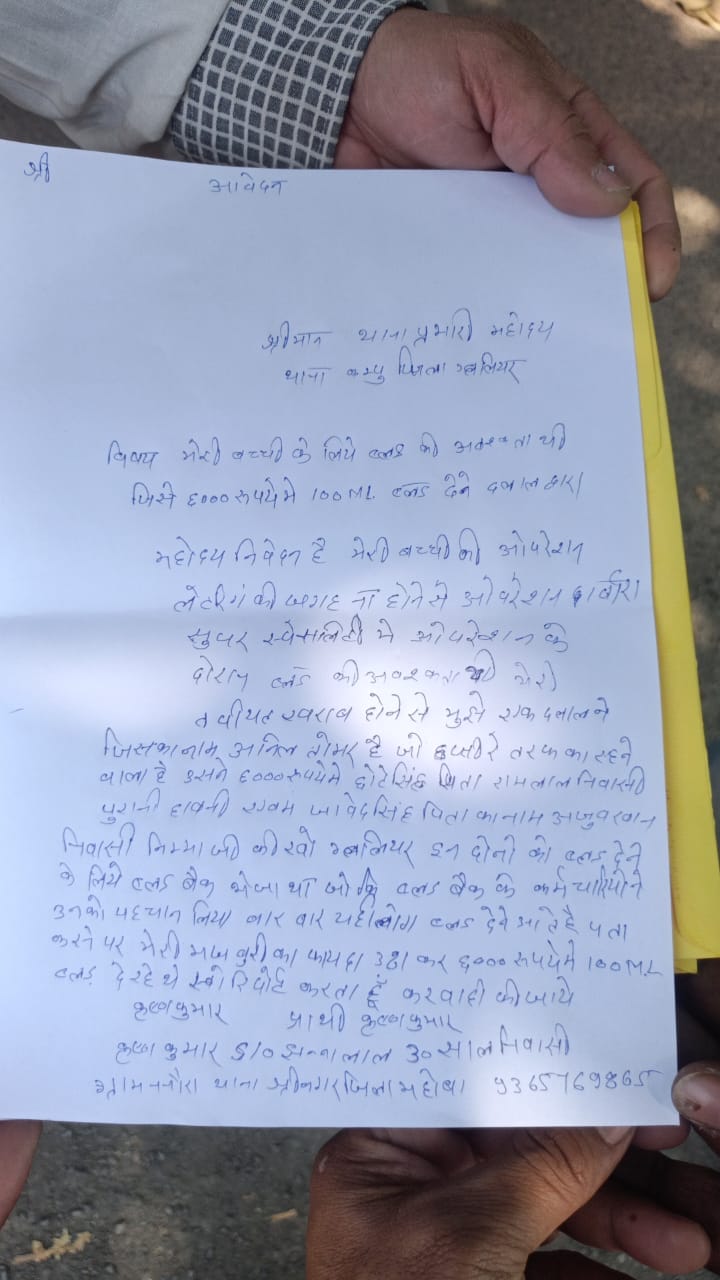 श्री
आवेदन
श्रीमान थाना प्रभारी महोदय
थाना कम्पू जिला ग्वालियर
विषय मेरी बच्ची के लिये ब्लड की अवश्कता थी
जिसे 6000 रूपये मे 100 ML ब्लड देने दलाल द्वारा
महोदय निवेदन है मेरी बच्ची की ओपरेशन
लेटरिंग की जगह ना होने से ओपरेशन
सुपर स्पेसलिटी मे ओपरेशन के
दोरान ब्लड की अवश्कता थी मेरी
तबीयत खराब होने से मुझे एक दलाल ने
जिसका नाम अनिल तोमर है जो तरफ का रहने
वाला है उसने 6000 रूपये मे छोटे सिंह पिता रामलाल निवासी
पुरानी छावनी एवम जावेद सिंह पिता का नाम
निवासी निम्मा जी की खो ग्वालियर इन दोनो को ब्लड देने
के लिये ब्लड बैंक भेजा था जो कि ब्लड बैंक के कर्मचारियो ने
उनको पहचान लिया बार बार यही लोग ब्लड देने आते है पता
करने पर मेरी मजबुरी का फायदा उठा कर 6000 रूपये मे 100 ML
ब्लड दे रहे थे रिपोर्ट करता हूँ करवाही की जाये
कृष्ण कुमार प्रार्थी कृष्ण कुमार
कृष्ण कुमार S/O झन्नालाल 30 साल निवासी
ग्राम ननौरा थाना श्रीनगर जिला महोबा 9365769865